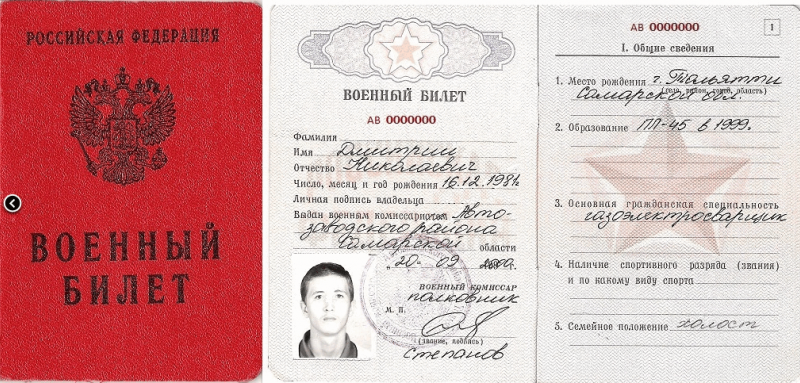 РОССИЙСКАЯ ФЕДЕРАЦИЯ
ВОЕННЫЙ
БИЛЕТ
ВОЕННЫЙ БИЛЕТ
АВ 0000000
Фамилия
Имя Дмитрий
Отчество Николаевич
Число, месяц и год рождения 16.12.1981г
Личная подпись владельца
Выдан военным комиссариатом Авто-
заводского района
Самарской области
„20" 09 2000 г.
ВОЕННЫЙ КОМИССАР
полковник
М. П.
(звание, подпись)
Степанов
АВ 0000000
1
I. Общие сведения
1. Место рождения г. Тольятти
(село, район, город, область)
Самарской обл.
2. Образование ПЛ-45 в 1999г.
3. Основная гражданская специальность
газоэлектросварщик
4. Наличие спортивного разряда (звания)
и по какому виду спорта
5. Семейное положение холост